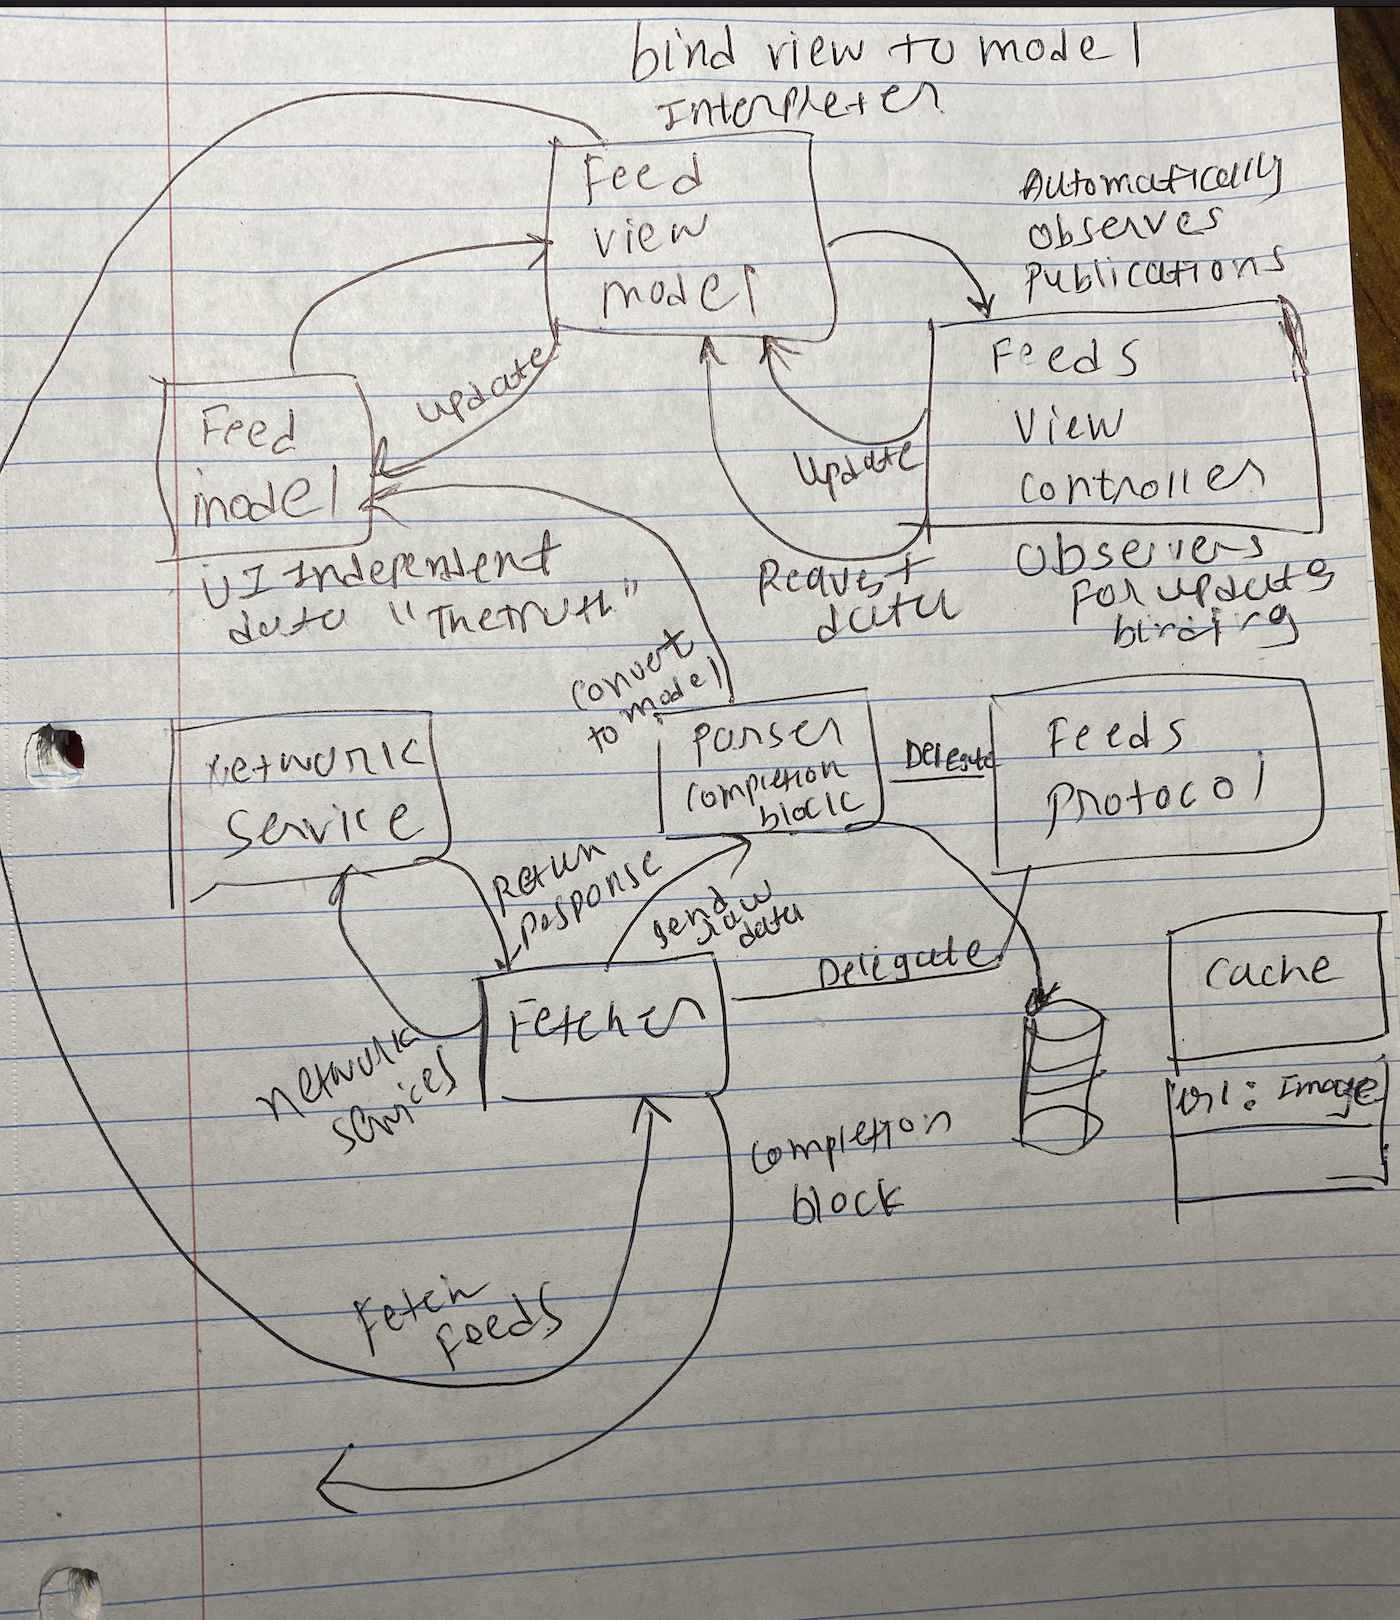 bind view to model
Interpreter
Feed
view
model
Automatically
Observes
Publications
Feeds
View
Controller
update
Update
Feed
model
UI Independent
data "The truth"
Request
data
Observers
For update
binding
convert
to model
Network
Service
Parser
completion
block
Delegate
Feeds
Protocol
Return
Response
send
raw
data
Delegate
Cache
url: Image
Fetcher
network
services
completion
block
Fetch
Feeds